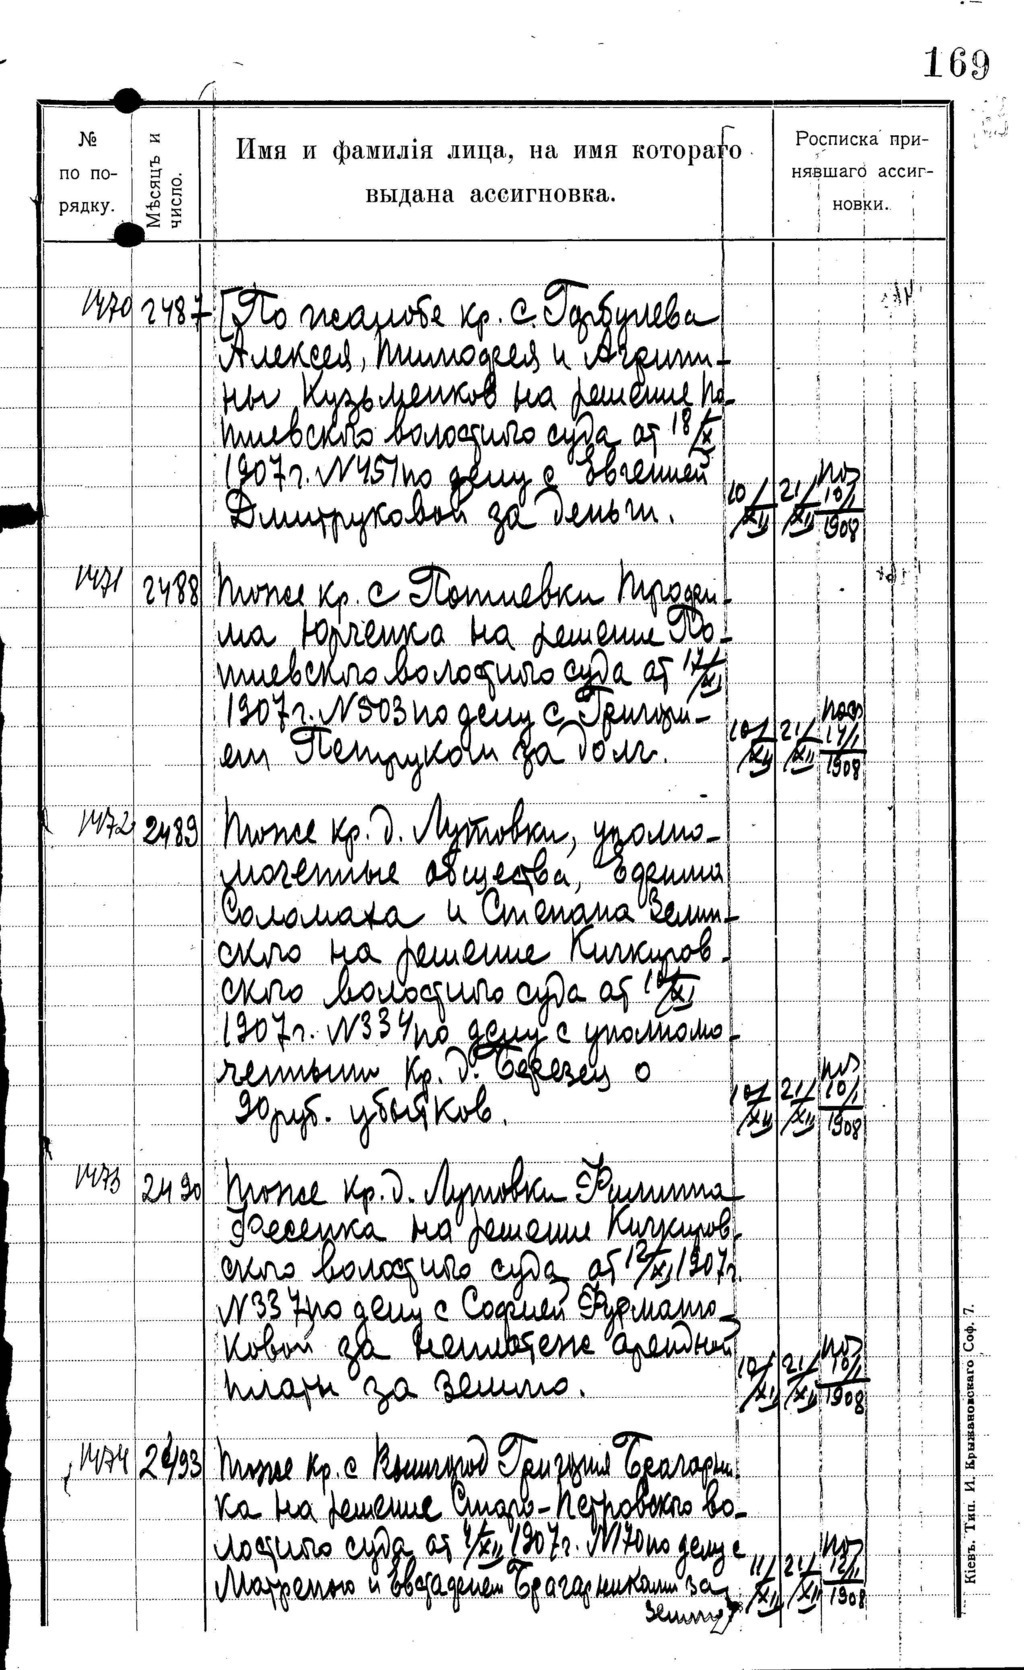 169
№
по по-
рядку.
Мѣсяцъ и
число.
Имя и фамилія лица, на имя котораго
выдана ассигновка.
Росписка при-
нявшаго ассиг-
новки.
1470 2487 По жалобе кр. с. Горбулева
Алексея, Тимофея и Агрипи-
ны Кузьменков на решение По-
тиевского волостного суда от 18/XI
1907 г. N 451 по делу с Евгенией
Дмитруковой за деньги.
10/XII 21/XII 10/I 1908
1471 2488 Тоже кр. с Потиевки Трофи-
ма Юрченка на решение По-
тиевского волостного суда от 17/XI
1907 г. N 503 по делу с Григори-
ем Петруком за долг.
10/XII 21/XII 14/I 1908
1472 2489 Тоже кр. д. Лутовки, уполно-
моченные общества, Ефима
Соломаха и Степана Зелин-
ского на решение Кичкиров-
ского волостного суда от 10/XI
1907 г. N 334 по делу с уполномо-
ченным кр. д. Березец о
90 руб. убытков.
10/XII 21/XII 10/I 1908
1473 2490 Тоже кр. д. Лутовки Филиппа
Фесенка на решение Кичкиров-
ского волостного суда от 12/XI 1907 г.
N 337 по делу с Софией
ковой за неплатеж арендной
платы за землю.
10/XII 21/XII 10/I 1908
1474 2493 Тоже кр. с Вышгород Григория Брагарни-
ка на решение Старо-Петровского во-
лостного суда от 1907 г. N 170 по делу с
Матреною и Брагарниками за
землю
11/XII 21/XII 12/I 1908
Кіевъ. Тип. И. Крыжановскаго Соф. 7.